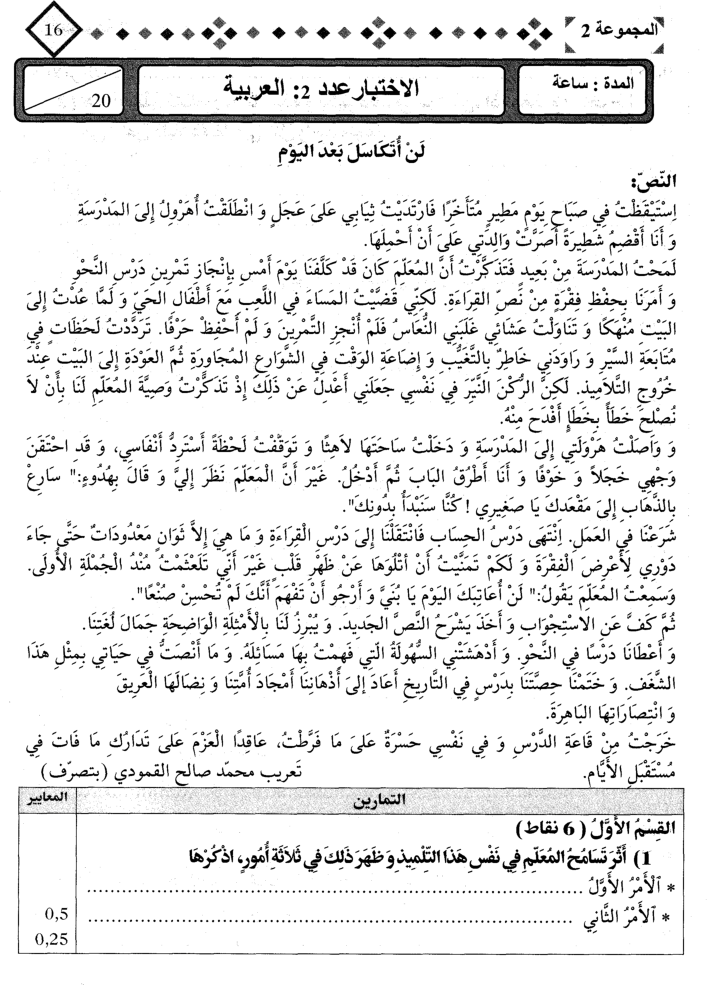 المجموعة 2
16
المدة : ساعة
الاختبار عدد 2: العربية
20
لَنْ أَتَكَاسَلَ بَعْدَ اليَوْمِ
النّصّ:
اِسْتَيْقَظْتُ فِي صَبَاحِ يَوْمٍ مَطِيرٍ مُتَأَخِّرًا فَارْتَدَيْتُ ثِيَابِي عَلىَ عَجَلٍ وَ انْطَلَقْتُ أُهَرْوِلُ إِلىَ المَدْرَسَةِ
وَ أَنَا أَقْضِمُ شَطِيرَةً أَصَرَّتْ وَالِدَتِي عَلىَ أَنْ أَحْمِلَهَا.
لَمَحْتُ المَدْرَسَةَ مِنْ بَعِيدٍ فَتَذَكَّرْتُ أَنَّ المُعَلِّمَ كَانَ قَدْ كَلَّفَنَا يَوْمَ أَمْسِ بِإِنْجَازِ تَمْرِينِ دَرْسِ النَّحْوِ
وَ أَمَرَنَا بِحِفْظِ فِقْرَةٍ مِنْ نَّصِّ القِرَاءَةِ. لَكِنِّي قَضَيْتُ المَسَاءَ فِي اللَّعِبِ مَعَ أَطْفَالِ الحَيِّ وَ لَمَّا عُدْتُ إِلىَ
البَيْتِ مُنْهَكًا وَ تَنَاوَلْتُ عَشَائِي غَلَبَنِي النُّعَاسُ فَلَمْ أُنْجِزِ التَّمْرِينَ وَ لَمْ أَحْفِظْ حَرْفًا. تَرَدَّدْتُ لَحَظَاتٍ فِي
مُتَابَعَةِ السَّيْرِ وَ رَاوَدَنِي خَاطِرٌ بِالتَّغَيُّبِ وَ إِضَاعَةِ الوَقْتِ فِي الشَّوَارِعِ المُجَاوِرَةِ ثُمَّ العَوْدَةِ إِلىَ البَيْتِ عِنْدَ
خُرُوجِ التَّلاَمِيذِ. لَكِنَّ الرُّكْنَ النَّيِّرَ فِي نَفْسِي جَعَلَنِي أَعْدِلُ عَنْ ذَلِكَ إِذْ تَذَكَّرْتُ وَصِيَّةَ المُعَلِّمِ لَنَا بِأَنْ لاَ
نُصْلِحَ خَطَأً بِخَطَإٍ أَفْدَحَ مِنْهُ.
وَ وَاصَلْتُ هَرْوَلَتِي إِلىَ المَدْرَسَةِ وَ دَخَلْتُ سَاحَتَهَا لاَهِثًا وَ تَوَقَّفْتُ لَحْظَةً أَسْتَرِدُّ أَنْفَاسِي، وَ قَدِ احْتَقَنَ
وَجْهِي خَجَلاً وَ خَوْفًا وَ أَنَا أَطْرُقُ البَابَ ثُمَّ أَدْخُلُ. غَيْرَ أَنَّ الْمَعَلِّمَ نَظَرَ إِليَّ وَ قَالَ بِهُدُوءٍ:" سَارِعْ
بِالذَّهَابِ إِلىَ مَقْعَدِكَ يَا صَغِيرِي ! كُنَّا سَنَبْدَأُ بِدُونِكَ".
شَرَعْنَا فِي العَمَلِ. اِنْتَهَى دَرْسُ الحِسَابِ فَانْتَقَلْنَا إِلىَ دَرْسِ الْقِرَاءَةِ وَ مَا هِيَ إِلاَّ ثَوَانٍ مَعْدُودَاتٌ حَتَّى جَاءَ
دَوْرِي لِأَعْرِضَ الْفِقْرَةَ وَ لَكَمْ تَمَنَّيْتُ أَنْ أَتْلُوَهَا عَنْ ظَهْرِ قَلْبٍ غَيْرَ أَنِّي تَلَعْثَمْتُ مُنْذُ الْجُمْلَةِ الأُولَى.
وَسَمِعْتُ المُعَلِّمَ يَقُولُ:" لَنْ أُعَاتِبَكَ اليَوْمَ يَا بُنَيَّ وَ أَرْجُو أَنْ تَفْهَمَ أَنَّكَ لَمْ تُحْسِنْ صُنْعًا".
ثُمَّ كَفَّ عَنِ الاسْتِجْوَابِ وَ أَخَذَ يَشْرَحُ النَّصَّ الجَدِيدَ. وَ يُبْرِزُ لَنَا بِالْأَمْثِلَةِ الْوَاضِحَةِ جَمَالَ لُغَتِنَا.
وَ أَعْطَانَا دَرْسًا فِي النَّحْوِ. وَ أَدْهَشَتْنِي السُّهُولَةُ الّتِي فَهِمْتُ بِهَا مَسَائِلَهُ. وَ مَا أَنْصَتُّ فِي حَيَاتِي بِمِثْلِ هَذَا
الشَّغَفِ. وَ خَتَمْنَا حِصَّتَنَا بِدَرْسٍ فِي التَّارِيخِ أَعَادَ إِلىَ أَذْهَانِنَا أَمْجَادَ أُمَّتِنَا وَ نِضَالَهَا الْعَرِيقَ
وَ انْتِصَارَاتِهَا البَاهِرَةَ.
خَرَجْتُ مِنْ قَاعَةِ الدَّرْسِ وَ فِي نَفْسِي حَسْرَةٌ عَلىَ مَا فَرَّطْتُ، عَاقِدًا الْعَزْمَ عَلىَ تَدَارُكِ مَا فَاتَ فِي
مُسْتَقْبَلِ الأَيَّامِ. تَعريب محمّد صالح القمودي (بتصرّف)
التمارين
المعايير
القِسْمُ الأَوَّلُ ( 6 نقاط)
1) أَثَّرَ تَسَامُحُ المُعَلِّمِ فِي نَفْسِ هَذَا التِّلْمِيذِ وَ ظَهَرَ ذَلِكَ فِي ثَلاَثَةِ أُمُورٍ، اذْكُرْهَا
* اَلْأَمْرُ الأَوَّلُ ........................................................................
* اَلأَمْرُ الثَّانِي ........................................................................
0,5
0,25